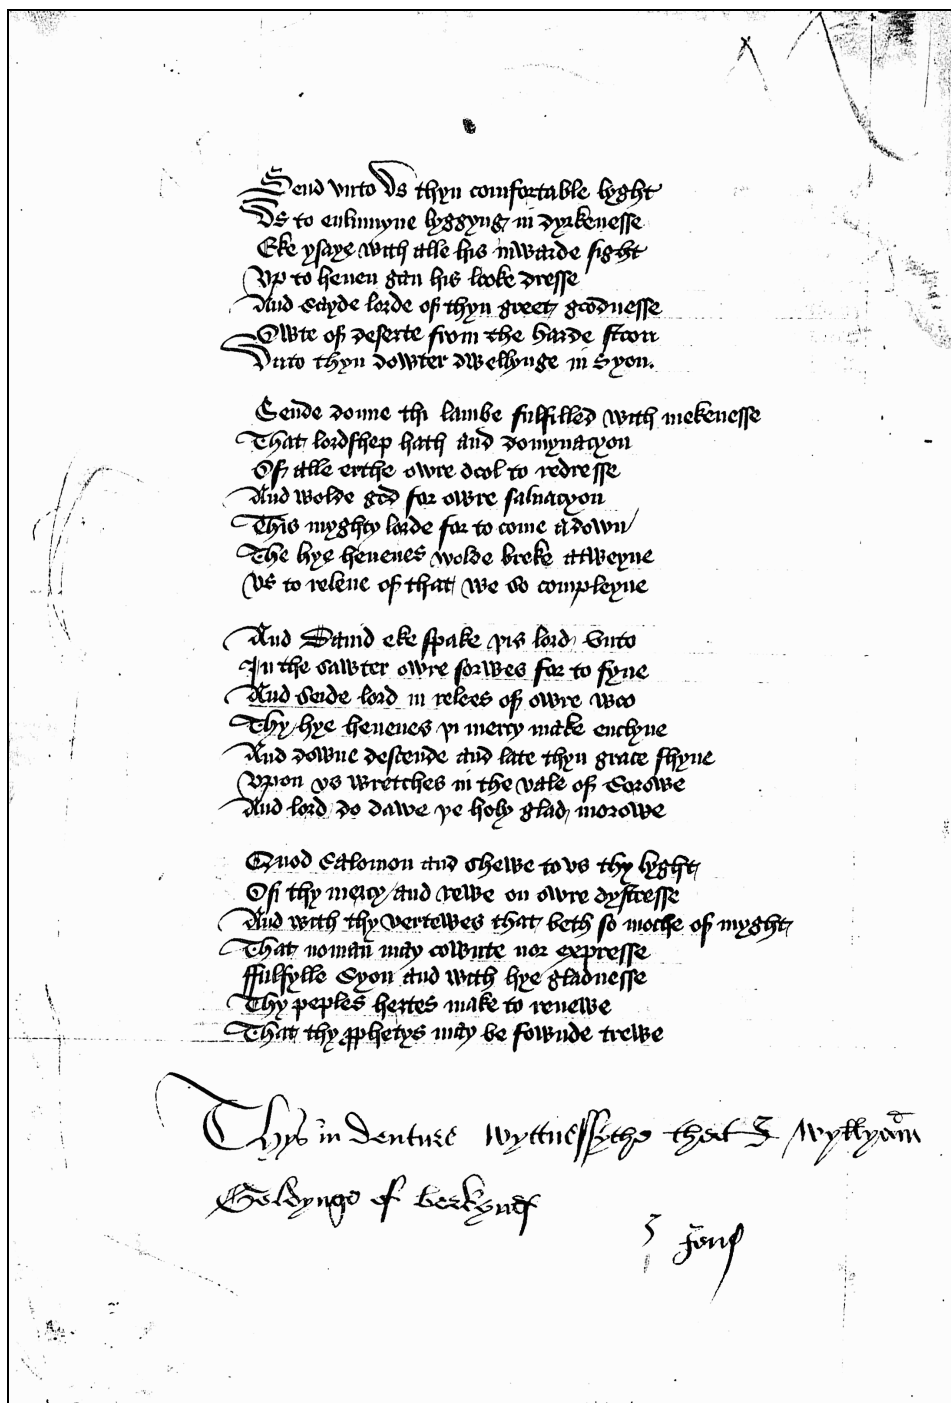 Send vnto Vs thyn comfortable lyght
Vs to enlumyne lyggyng in dyrkenesse
Eke ysaye with alle his inwarde sight
Vp to heuen gan his looke dresse
And sayde lorde of thyn greet goodnesse
Owte of deserte from the harde ston
Vnto thyn dowter dwellynge in Syon.
Sende doune thi lambe fulfilled with mekenesse
That lordshep hath and domynacyon
Of alle erthe owre dool to redresse
And wolde god for owre saluacyon
This myghty lorde for to come adown
The hye heuenes wolde breke atweyne
Vs to releue of that we so compleyne
And Dauid eke spake þis lord vnto
In the sawter owre sorwes for to fyne
And seide lord in relees of owre woo
Thy hye heuenes þi mercy make enclyne
And downe descende and late thyn grace shyne
Vpon vs wretches in the vale of Sorowe
And lord do dawe þe holy glad morowe
Quod Salomon and shewe to vs thy lyght
Of thy mercy and rewe on owre dystresse
And with thy vertewes that beth so moche of myght
That noman may cownte nor expresse
ffulfylle Syon and with hye gladnesse
Thy peples hertes make to renewe
That thy ꝓphetys may be fownde trewe
Thys in denture wyttnessythe that I wyllyam
Goldynge of